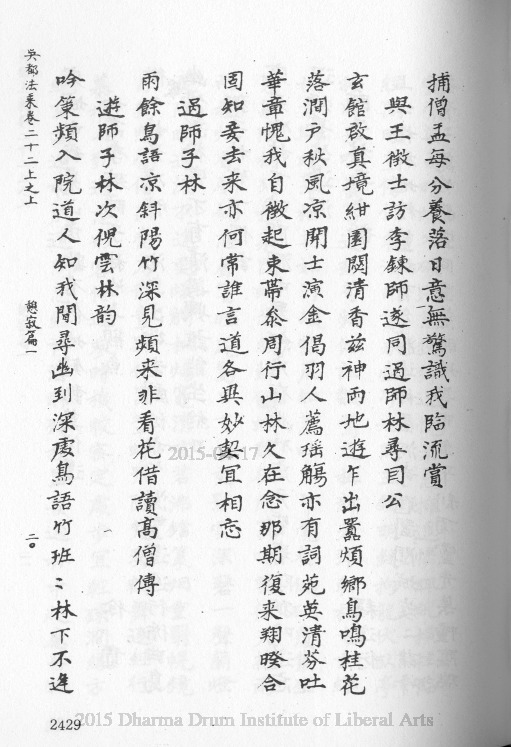 捕僧盂每分養落日意無驚識我臨流賞
與王徵士訪李鍊師遂同過師林尋因公
玄館啟真境紺園閟清香茲神兩地遊乍出囂煩鄉鳥鳴桂花
落澗戶秋風涼開士演金偈羽人薦瑤觴亦有詞苑英清芬吐
華章愧我自徵起束帶叅周行山林久在念那期復来翔暌合
固知妄去来亦何常誰言道各異妙契宜相忘
過師子林
雨餘鳥語凉斜陽竹深見頻来非看花借讀高僧傳
遊師子林次倪雲林韵
吟策頻入院道人知我閒尋幽到深處鳥語竹班〻林下不逢
吳都法乘卷二十二上之上
憩寂篇一
二〇
2429
2015-03-17
2015 Dharma Drum Institute of Liberal Arts